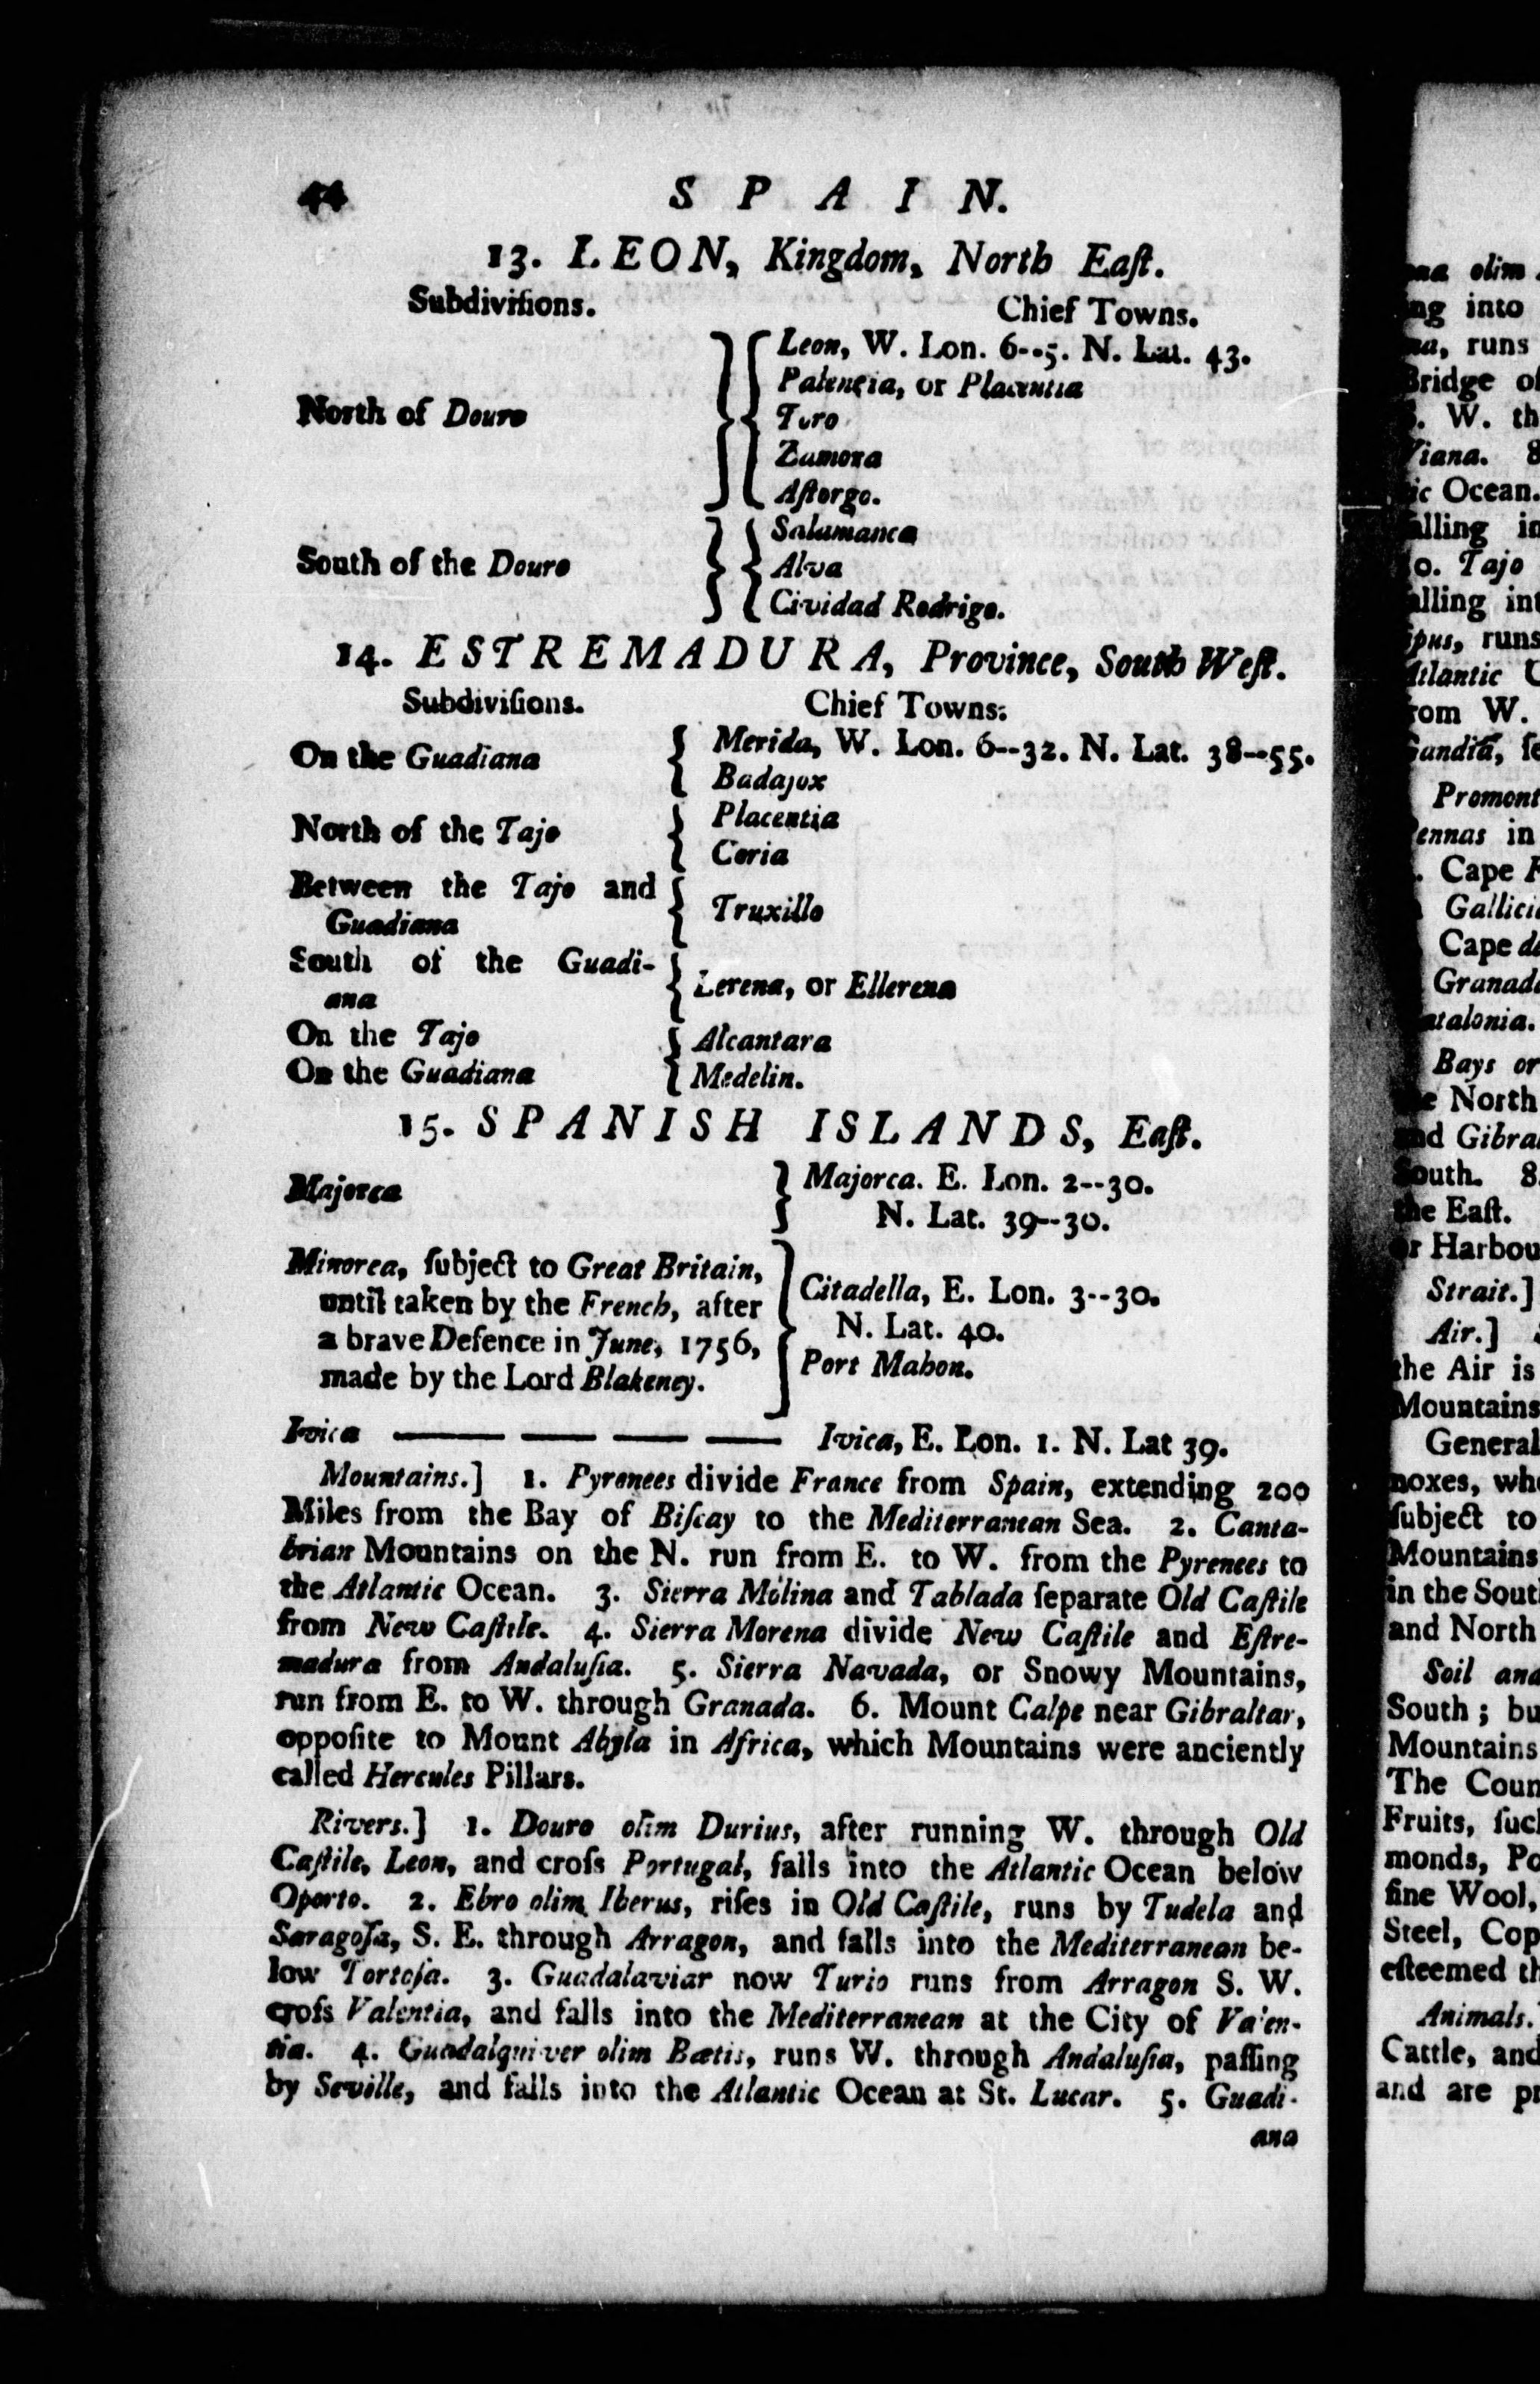 44 S P A I N.
13. LEON, Kingdom, North Eaſt.
Subdiviſions. Chief Towns.
Leon, W. Lon. 6--5. N. Lat. 43.
Palencia, or Placentia
North of Douro
Toro
Zamora
Aſtorgo.
Salamanca
South of the Douro
Alva
Cividad Rodrigo.
14. ESTREMADURA, Province, South Weſt.
Subdiviſions. Chief Towns:
On the Guadiana
Merida, W. Lon. 6--32. N. Lat. 38--55.
Badajox
North of the Tajo
Placentia
Coria
Between the Tajo and
Guadiana
Truxillo
South of the Guadi-
ana
Lerena, or Ellerena
On the Tajo Alcantara
On the Guadiana Medelin.
15. SPANISH ISLANDS, Eaſt.
Majorca
Majorca. E. Lon. 2--30.
N. Lat. 39--30.
Minorca, ſubject to Great Britain,
until taken by the French, after
a brave Defence in June, 1756,
made by the Lord Blakeney.
Citadella, E. Lon. 3--30.
N. Lat. 40.
Port Mahon.
Ivica — — — — Ivica, E. Lon. 1. N. Lat 39.
Mountains.] 1. Pyrenees divide France from Spain, extending 200
Miles from the Bay of Biſcay to the Mediterranean Sea. 2. Canta-
brian Mountains on the N. run from E. to W. from the Pyrenees to
the Atlantic Ocean. 3. Sierra Molina and Tablada ſeparate Old Caſtile
from New Caſtile. 4. Sierra Morena divide New Caſtile and Eſtre-
madura from Andaluſia. 5. Sierra Navada, or Snowy Mountains,
run from E. to W. through Granada. 6. Mount Calpe near Gibraltar,
oppoſite to Mount Abyla in Africa, which Mountains were anciently
called Hercules Pillars.
Rivers.] 1. Douro olim Durius, after running W. through Old
Caſtile, Leon, and croſs Portugal, falls into the Atlantic Ocean below
Oporto. 2. Ebro olim Iberus, riſes in Old Caſtile, runs by Tudela and
Saragoſa, S. E. through Arragon, and falls into the Mediterranean be-
low Tortoſa. 3. Guadalaviar now Turio runs from Arragon S. W.
croſs Valentia, and falls into the Mediterranean at the City of Valen-
tia. 4. Guadalquiver olim Bætis, runs W. through Andaluſia, paſſing
by Seville, and falls into the Atlantic Ocean at St. Lucar. 5. Guadi-
ana
olim
into
runs
Bridge
W. th
Viana. 8
Ocean.
in
Tajo
runs
Atlantic
W.
Gandia, ſe
Promont
in
Cape
Gallici
Cape
Granad
Bays or
North
Gibra
South. 8
the Eaſt.
or Harbou
Strait.]
Air.]
the Air is
Mountains
General
noxes, wh
ſubject to
Mountains
in the Sout
and North
Soil and
South ; bu
Mountains
The Coun
Fruits, ſuc
monds, Po
fine Wool,
Steel, Cop
eſteemed th
Animals.
Cattle, and
and are pr